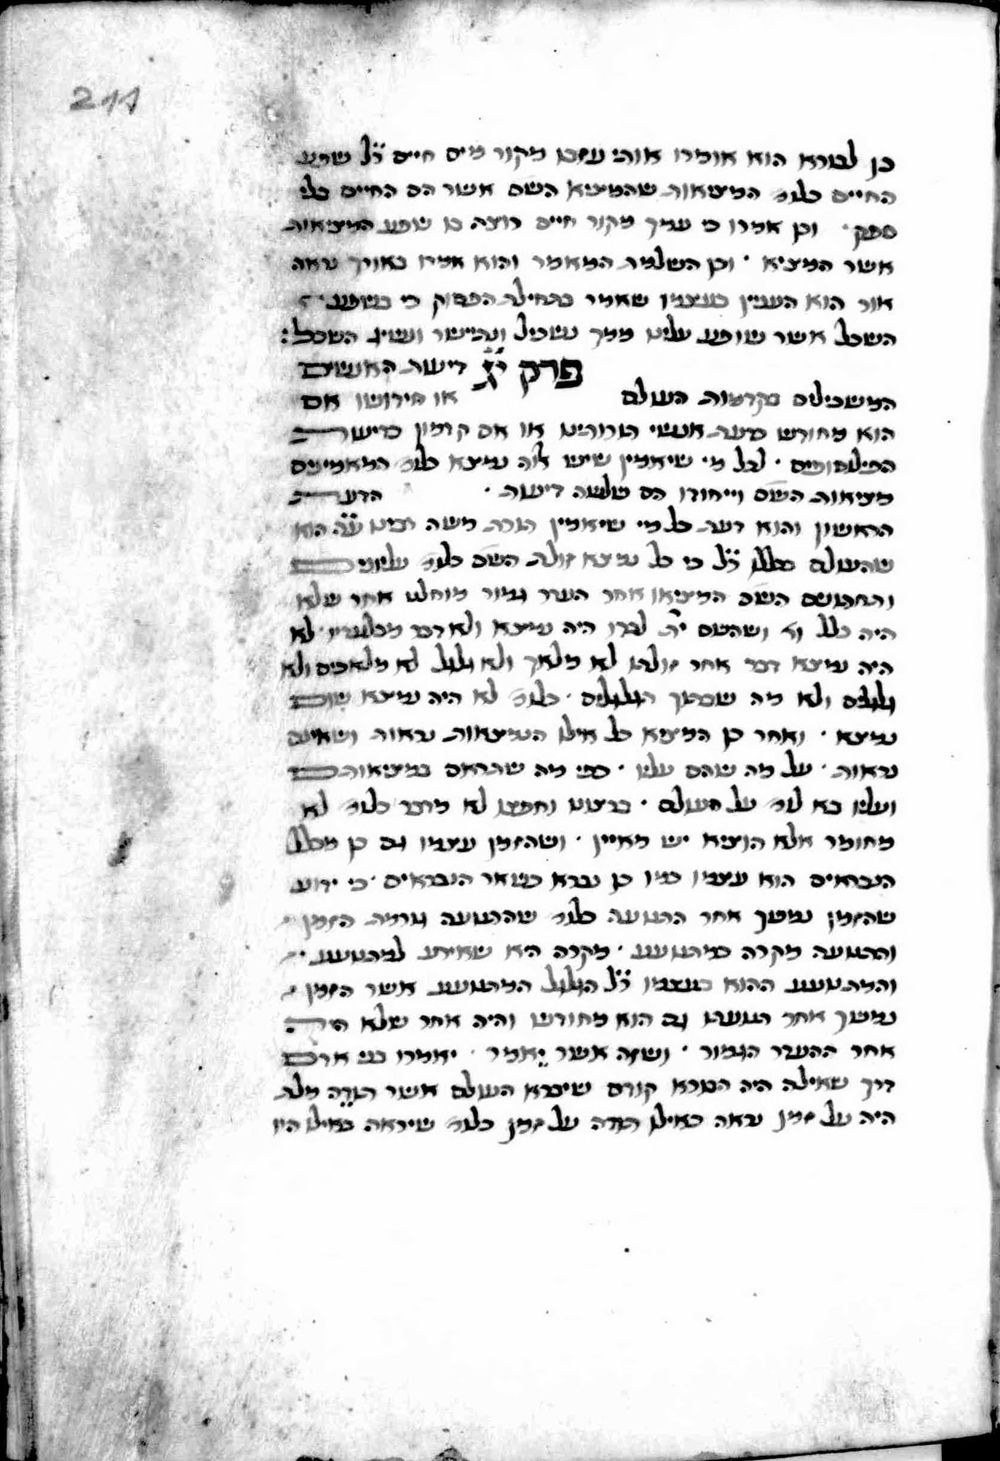 211
כן לבורא הוא אומרו אותי עזבו מקור מים חיים ר״ל שפע
החיים כלומ' המציאות שהמציא השם אשר הם החיים בלי
ספק · וכן אמרו כי עמך מקור חיים רוצה בו שפע המציאות
אשר המציא · וכן השלמת המאמר והוא אמרו באורך נראה
אור הוא העניין בעצמו שאמר בתחילת הפסוק כי בשפע
השכל אשר שופע עלינו ממך נשכיל ונתיישר ונשיג השכל :
פרק י״ג דיעות האנשים
המשכילים בקדמות העולם או חידושו אם
הוא מחודש כדעת אנשי תורותינו או אם קדמון כדיעות
הפילוסופים · לכל מי שיאמין שיש אלוה נמצא כלומ' המאמינים
מציאות השם וייחודו הם שלשה דיעות · הדעת
הראשון והוא דעת כל מי שיאמין תורת משה רבינו ע״ה הוא
שהעולם בכללו ר״ל כי כל נמצא זולת השם כלומ' עליונים
ותחתונים השם המציאו אחר העדר גמור מוחלט אחר שלא
היה כלל ושהשם ית' לבדו היה נמצא ולא דבר מבלעדיו לא
היה נמצא דבר אחר זולתו לא מלאך ולא גלגל לא מלאכים ולא
גלגלים ולא מה שבתוך הגלגלים · כלומ' לא היה נמצא שום
נמצא · ואחר כן המציא כל אילו הנמצאות נראות ושאינם
נראות · על מה שהם עליו · כפי מה שתראם במציאותם
ועליו בא לומ' על העולם · ברצונו וחפצו לא מדבר כלומ' לא
מחומר אלא הוציא יש מאיין · ושהזמן עצמו גם כן מכלל
הנבראים הוא עצמו כמו כן נברא כשאר הנבראים · כי ידוע
שהזמן נמשך אחר התנועה כלומ' שהתנועה גורמת הזמן
והתנועה מקרה במתנועע · מקרה היא שאירע למתנועע
והמתנועע ההוא בעצמו ר״ל הגלגל המתנועע אשר הזמן
נמשך אחר תנועתו גם הוא מחודש והיה אחר שלא היה
אחר ההעדר הגמור · ושזה אשר יאמר · יאמרו בני אדם
דרך שאילה היה הבורא קודם שיברא העולם אשר תורה מלת
היה על זמן נראה כאילו תורה על זמן כלומ' שיראה כאילו היו